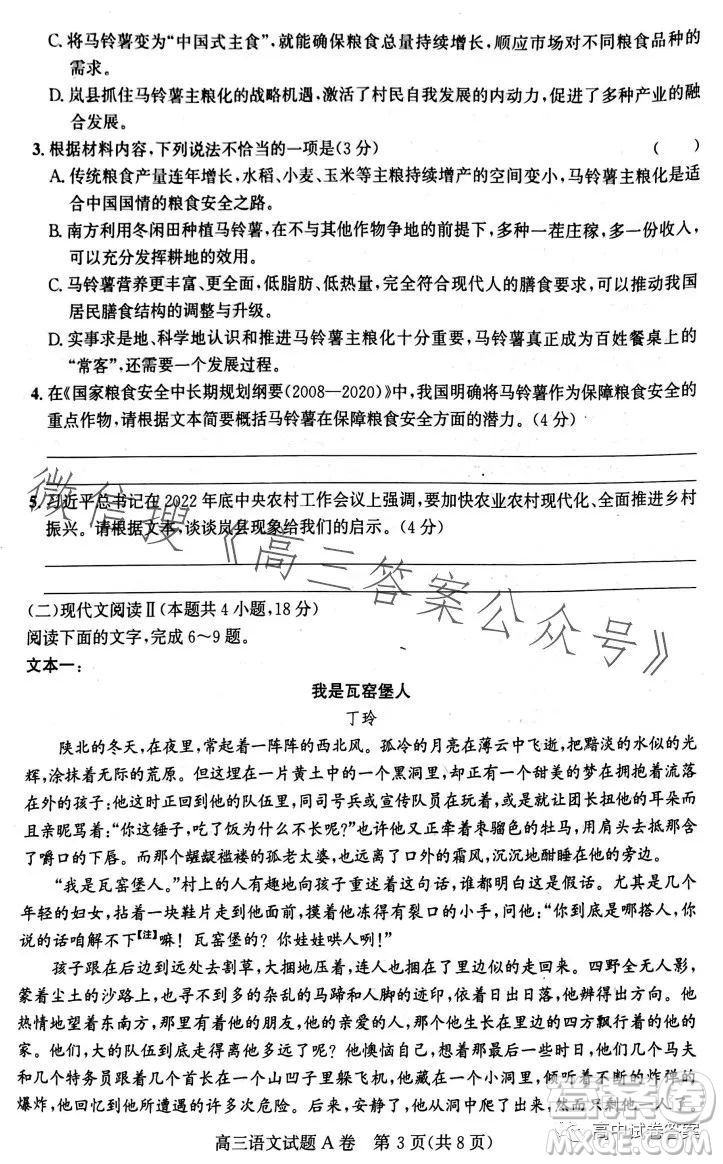 C. 将马铃薯变为“中国式主食”，就能确保粮食总量持续增长，顺应市场对不同粮食品种的
需求。
D. 岚县抓住马铃薯主粮化的战略机遇，激活了村民自我发展的内动力，促进了多种产业的融
合发展。
3. 根据材料内容，下列说法不恰当的一项是（3 分） （ ）
A. 传统粮食产量连年增长，水稻、小麦、玉米等主粮持续增产的空间变小，马铃薯主粮化是适
合中国国情的粮食安全之路。
B. 南方利用冬闲田种植马铃薯，在不与其他作物争地的前提下，多种一茬庄稼，多一份收入，
可以充分发挥耕地的效用。
C. 马铃薯营养更丰富、更全面，低脂肪、低热量，完全符合现代人的膳食要求，可以推动我国
居民膳食结构的调整与升级。
D. 实事求是地、科学地认识和推进马铃薯主粮化十分重要，马铃薯真正成为百姓餐桌上的
“常客”，还需要一个发展过程。
4. 在《国家粮食安全中长期规划纲要（2008—2020）》中，我国明确将马铃薯作为保障粮食安全的
重点作物，请根据文本简要概括马铃薯在保障粮食安全方面的潜力。（4 分）
5. 习近平总书记在 2022 年底中央农村工作会议上强调，要加快农业农村现代化、全面推进乡村
振兴。请根据文本，谈谈岚县现象给我们的启示。（4 分）
微信搜《高三答案公众号》
（二）现代文阅读Ⅱ（本题共 4 小题，18 分）
阅读下面的文字，完成 6～9 题。
文本一：
我是瓦窑堡人
丁玲
陕北的冬天，在夜里，常起着一阵阵的西北风。孤冷的月亮在薄云中飞逝，把黯淡的水似的光
辉，涂抹着无际的荒原。但这埋在一片黄土中的一个黑洞里，却正有一个甜美的梦在拥抱着流落
在外的孩子：他这时正回到他的队伍里，同司号兵或宣传队员在玩着，或是让团长扭他的耳朵而
且亲昵骂着：“你这锤子，吃了饭为什么不长呢？”也许他又正牵着枣骝色的牡马，用肩头去抵含
了嚼口的下唇。而那个龌龊褴褛的孤老太婆，也远离了口外的霜风，沉沉地酣睡在他的旁边。
“我是瓦窑堡人。”村上的人有趣地向孩子重述着这句话，谁都明白这是假话。尤其是几个
年轻的妇女，拈着一块鞋片走到他面前，摸着他冻得有裂口的小手，问他：“你到底是哪搭人，你
说的话咱解不下[注]嘛！瓦窑堡的？你娃娃哄人哩！”
孩子跟在后边到远处去割草，大捆地压着，连人也捆在了里边似的走回来。四野全无人影，
蒙着尘土的沙路上，也寻不到多的杂乱的马蹄和人脚的迹印，依着日出日落，他辨得出方向。他
热情地望着东南方，那里有着他的朋友，他的亲爱的人，那个他生长在里边的四方飘行着的他的
家。他们，大的队伍到底走得离他多远了呢？他懊恼自己，想着那最后一些时日，他们几个马夫
和几个特务员跟着几个首长在一个山凹子里躲飞机，他藏在一个小洞里，倾听着不断的炸弹的
爆炸，他回忆到他所遭遇的许多次危险。后来，安静了，他从洞中爬了出来，然而只剩他一人了。
高三语文试题 A 卷 第 3 页（共 8 页）
高中试卷答案